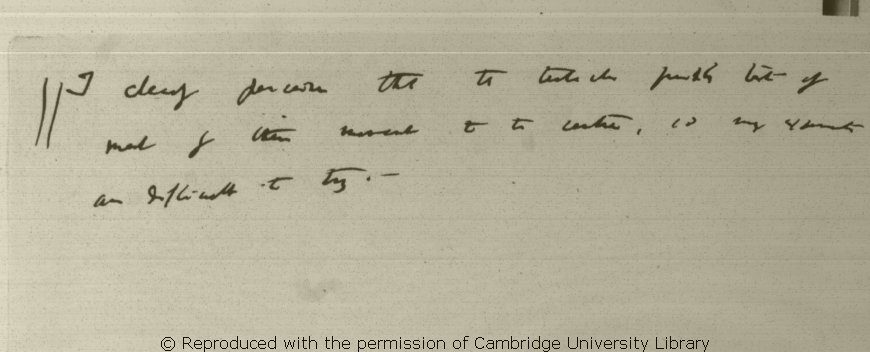 I clearly perceive that the tentacles possibly both of
most of their movement to the centre, so my experiments
are difficult to try.—
© Reproduced with the permission of Cambridge University Library